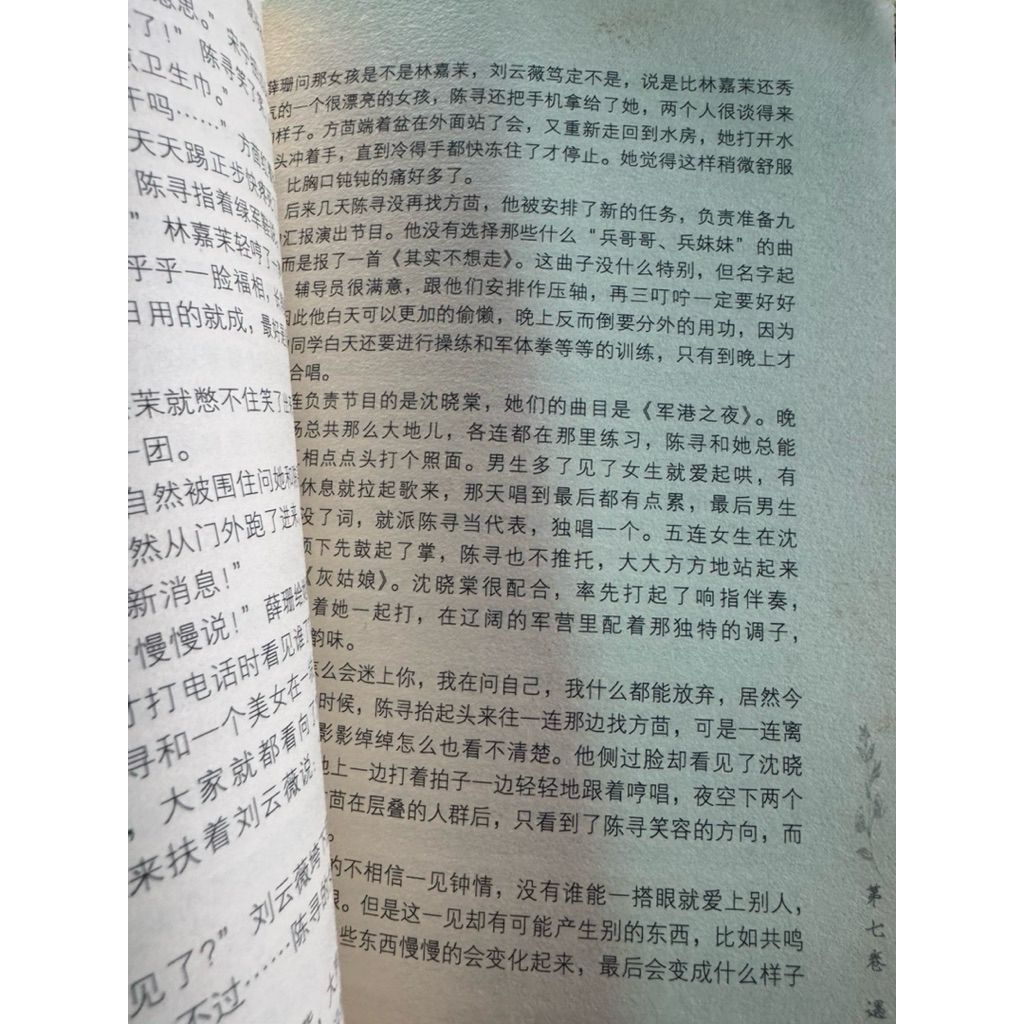 思思。”宋宁
了！”陈寻笑了笑
卫生巾。”
干吗……”方茴
天天踢正步快
陈寻指着绿军
”林嘉茉轻哼了一
乎乎一脸福相，
日用的就成，最好是
茉就憋不住笑了
一团。
自然被围住问她和
然从门外跑了进来
新消息！”
慢慢说！”薛珊给
才打电话时看见谁了
寻和一个美女在一
，大家就都看向了
来扶着刘云薇说：
刘云薇
见了？”
不过……陈寻的
薛珊问那女孩是不是林嘉茉，刘云薇笃定不是，说是比林嘉茉还秀
气的一个很漂亮的女孩，陈寻还把手机拿给了她，两个人很谈得来
的样子。方茴端着盆在外面站了会，又重新走回到水房，她打开水
头冲着手，直到冷得手都快冻住了才停止。她觉得这样稍微舒服
比胸口钝钝的痛好多了。
后来几天陈寻没再找方茴，他被安排了新的任务，负责准备九
汇报演出节目。他没有选择那些什么“兵哥哥、兵妹妹”的曲
而是报了一首《其实不想走》。这曲子没什么特别，但名字起
辅导员很满意，跟他们安排作压轴，再三叮咛一定要好好
因此他白天可以更加的偷懒，晚上反而倒要分外的用功，因为
同学白天还要进行操练和军体拳等等的训练，只有到晚上才
合唱。
连负责节目的是沈晓棠，她们的曲目是《军港之夜》。晚
场总共那么大地儿，各连都在那里练习，陈寻和她总能
相点点头打个照面。男生多了见了女生就爱起哄，有
休息就拉起歌来，那天唱到最后都有点累，最后男生
没了词，就派陈寻当代表，独唱一个。五连女生在沈
领下先鼓起了掌，陈寻也不推托，大大方方地站起来
《灰姑娘》。沈晓棠很配合，率先打起了响指伴奏，
着她一起打，在辽阔的军营里配着那独特的调子，
韵味。
怎么会迷上你，我在问自己，我什么都能放弃，居然今
时候，陈寻抬起头来往一连那边找方茴，可是一连离
影影绰绰怎么也看不清楚。他侧过脸却看见了沈晓
地上一边打着拍子一边轻轻地跟着哼唱，夜空下两个
方茴在层叠的人群后，只看到了陈寻笑容的方向，而
。
的不相信一见钟情，没有谁能一搭眼就爱上别人，
很。但是这一见却有可能产生别的东西，比如共鸣
些东西慢慢的会变化起来，最后会变成什么样子
第七卷 遇